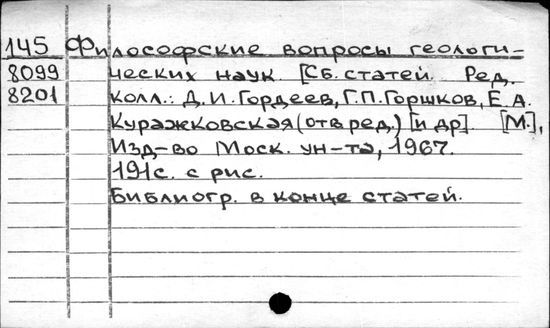 145 Философские вопросы геологи-
8099 ческих наук. [Сб. статей. Ред.
8201 колл.: Д.И. Гордеев, Г.П. Горшков, Е.А.
Куражковская (отв. ред.) [и др]. [М.],
Изд-во Моск. ун-та, 1967.
191с. с рис.
Библиогр. в конце статей.